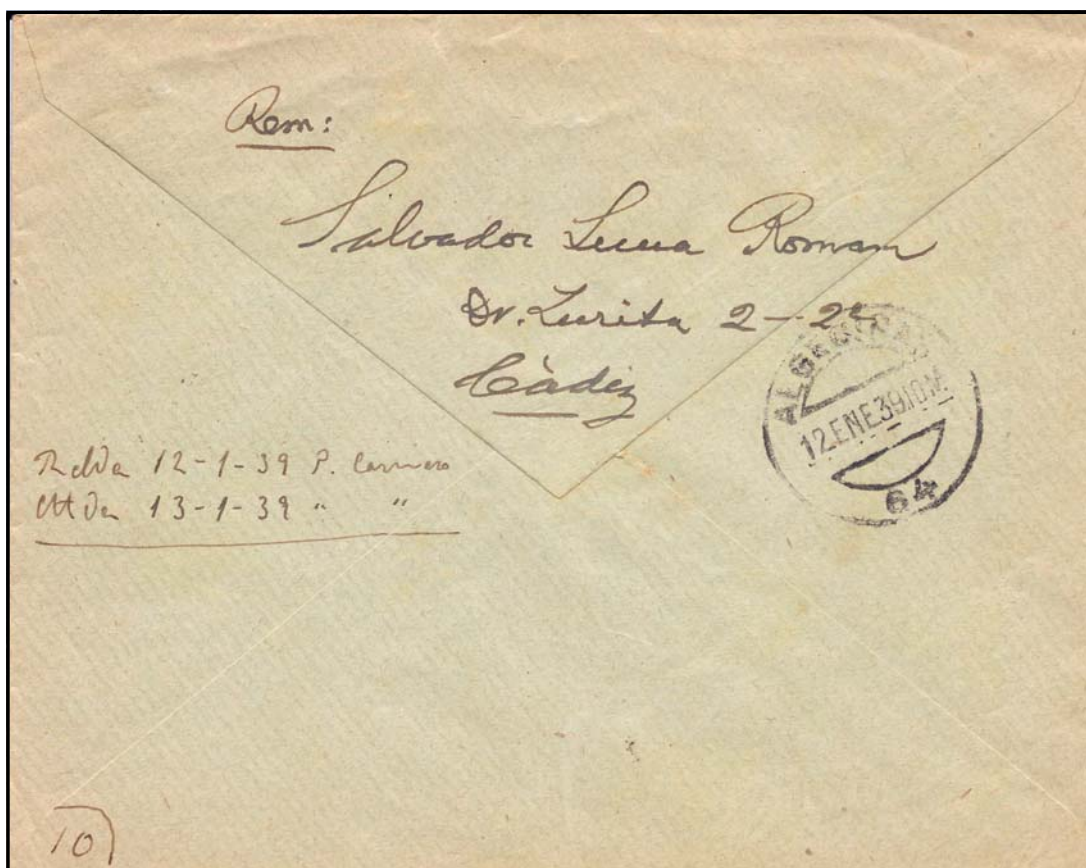 Rem:
Salvador Luna Roman
Dr. Zurita 2-2º
Càdiz
ALGECIRAS
12.ENE39.10M
64
12-1-39 P. Carnero
13-1-39 " "
10